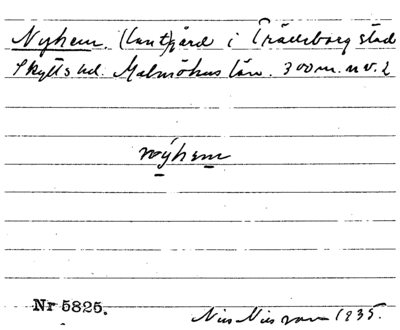 Nyhem. (lant)gård i Trälleborg stad
Skytts hd. Malmöhus län. 300 m. n v. l
nýhem
Nr 5825.
Nils Nilsson 1935.